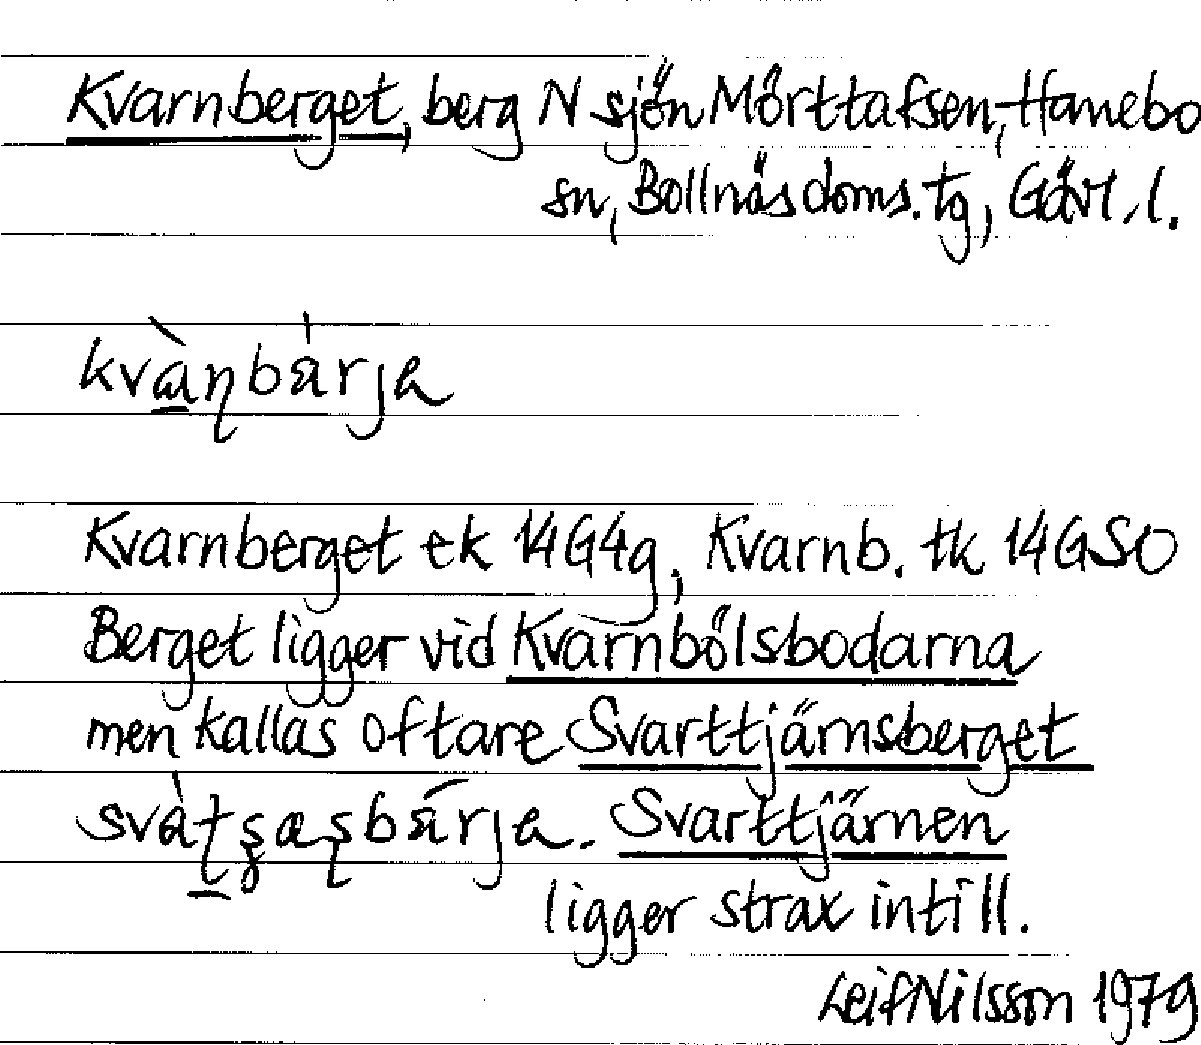 Kvarnberget, berg N sjön Mörttafsen, Hanebo
sn, Bollnäs doms. tg, Gävl. l.
kvàɳbárja
Kvarnberget ek 14G4g, Kvarnb. tk 14GSO
Berget ligger vid Kvarnbölsbodarna
men kallas oftare Svarttjärnsberget
Svarttjärnen
ligger strax intill.
Leif Nilsson 1979